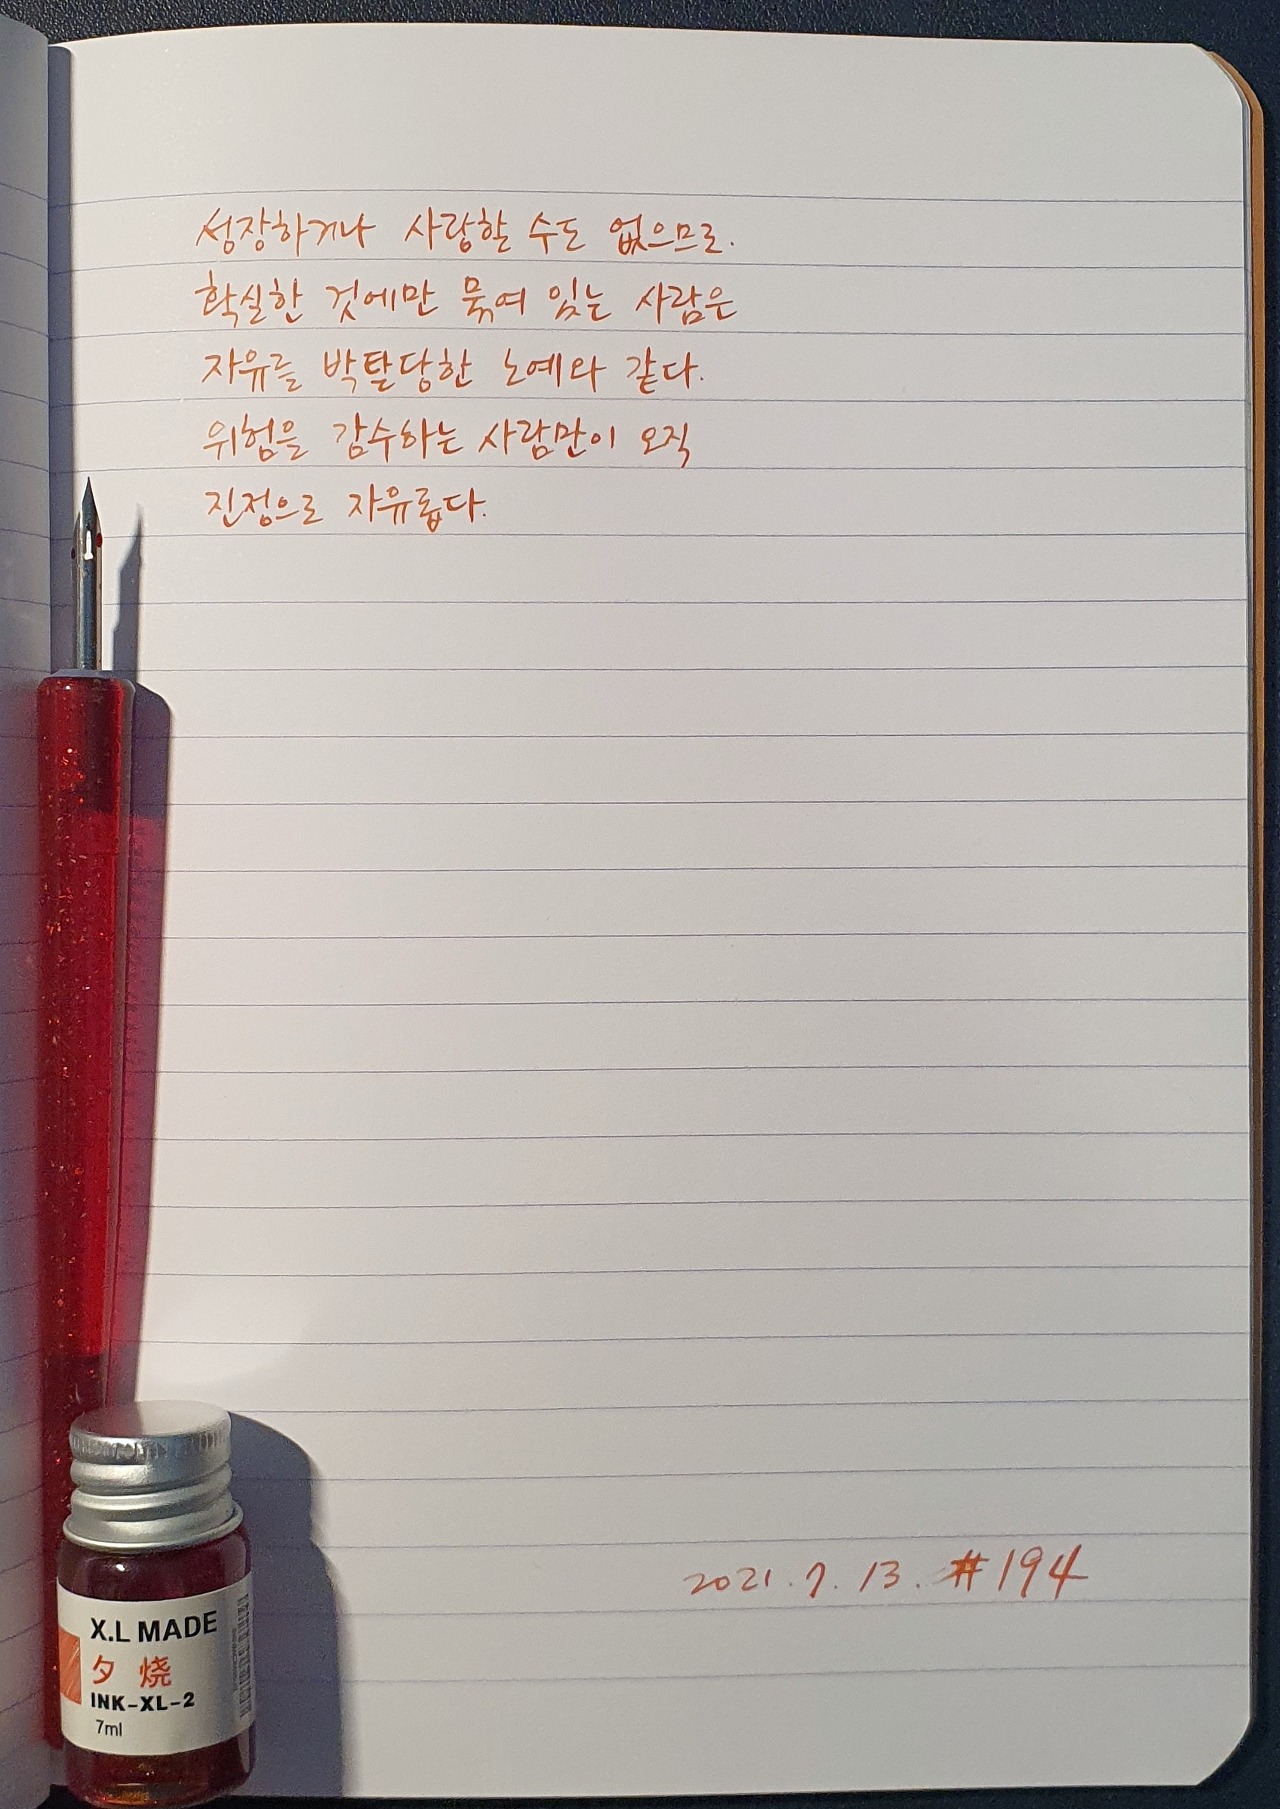 성장하거나 사랑할 수도 없으므로.
확실한 것에만 묶여 있는 사람은
자유를 박탈당한 노예와 같다.
위험을 감수하는 사람만이 오직
진정으로 자유롭다.
2021. 7. 13. #194
X.L MADE
夕 烧
INK-XL-2
7ml